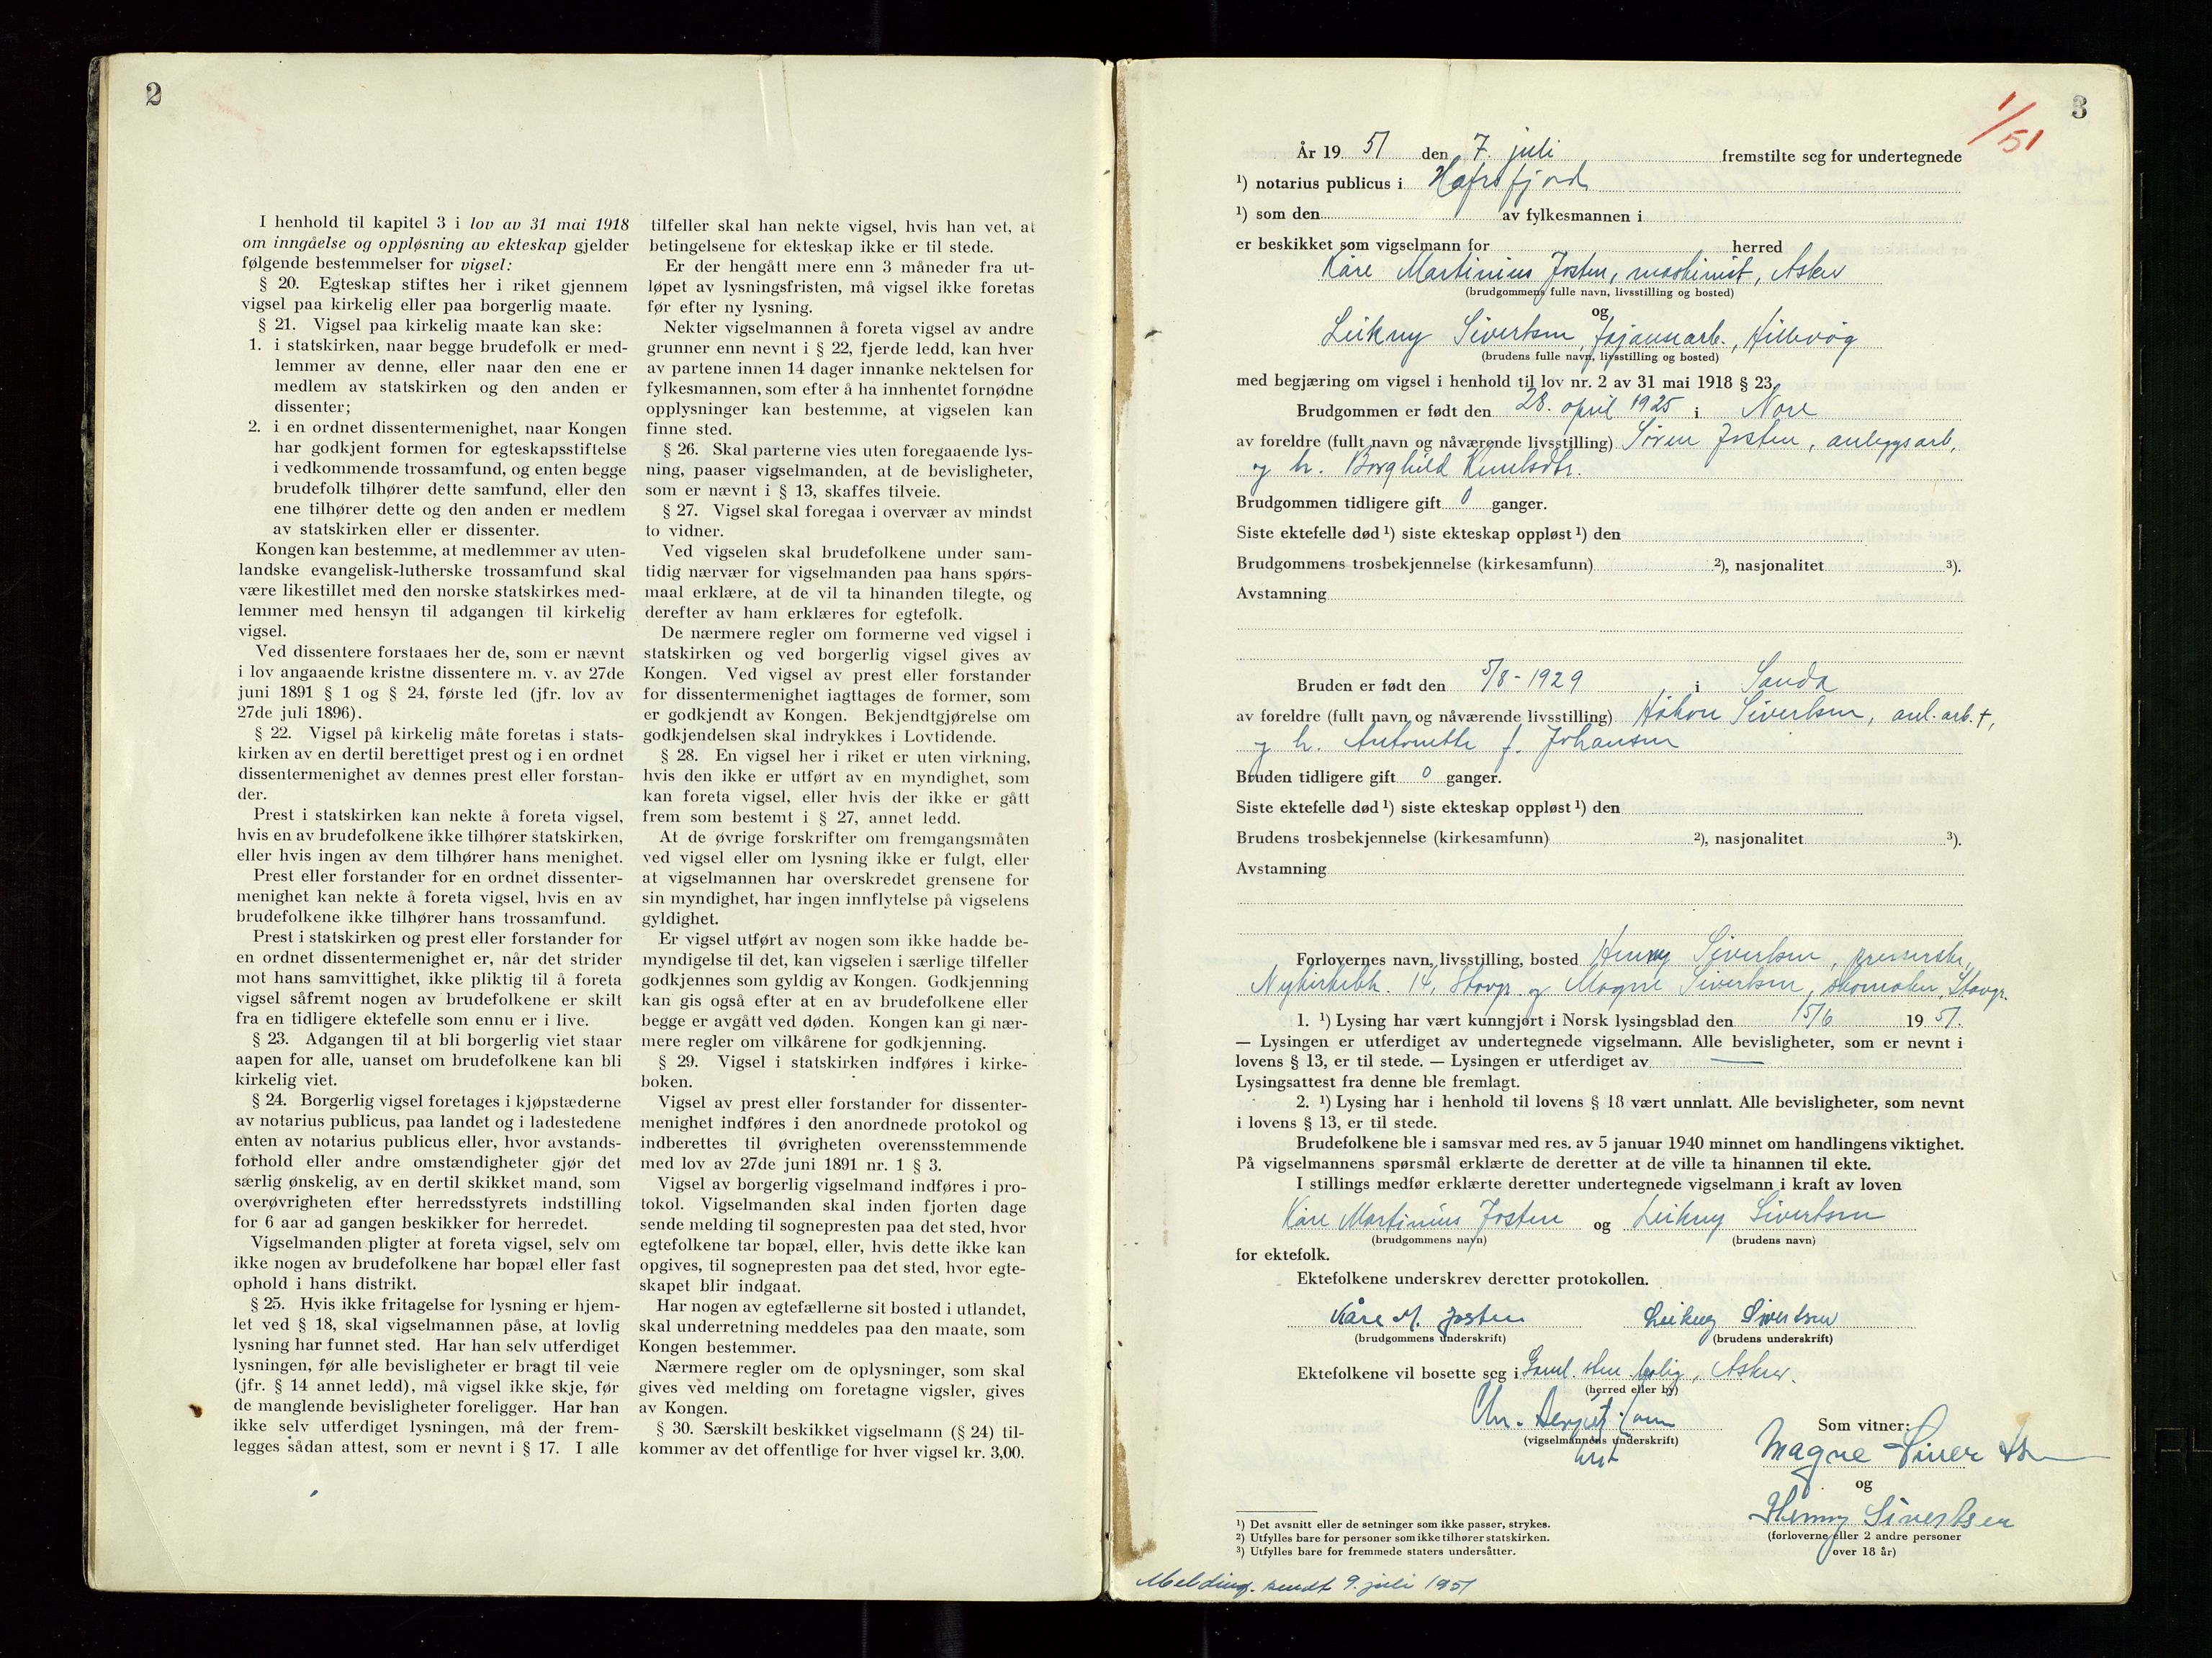 2
I henhold til kapitel 3 i lov av 31 mai 1918
om inngåelse og oppløsning av ekteskap gjelder
følgende bestemmelser for vigsel:
§ 20. Egteskap stiftes her i riket gjennem
vigsel paa kirkelig eller paa borgerlig maate.
§ 21. Vigsel paa kirkelig maate kan ske:
1. i statskirken, naar begge brudefolk er med-
lemmer av denne, eller naar den ene er
medlem av statskirken og den anden er
dissenter;
2. i en ordnet dissentermenighet, naar Kongen
har godkjent formen for egteskapsstiftelse
i vedkommende trossamfund, og enten begge
brudefolk tilhører dette samfund, eller den
ene tilhører dette og den anden er medlem
av statskirken eller er dissenter.
Kongen kan bestemme, at medlemmer av uten-
landske evangelisk-lutherske trossamfund skal
være likestillet med den norske statskirkes med-
lemmer med hensyn til adgangen til kirkelig
vigsel.
Ved dissentere forstaaes her de, som er nævnt
i lov angaaende kristne dissentere m. v. av 27de
juni 1891 § 1 og § 24, første led (jfr. lov av
27de juli 1896).
§ 22. Vigsel på kirkelig måte foretas i stats-
kirken av en dertil berettiget prest og i en ordnet
dissentermenighet av dennes prest eller forstan-
der.
Prest i statskirken kan nekte å foreta vigsel,
hvis en av brudefolkene ikke tilhører statskirken,
eller hvis ingen av dem tilhører hans menighet.
Prest eller forstander for en ordnet dissenter-
menighet kan nekte å foreta vigsel, hvis en av
brudefolkene ikke tilhører hans trossamfund.
Prest i statskirken og prest eller forstander for
en ordnet dissentermenighet er, når det strider
mot hans samvittighet, ikke pliktig til å foreta
vigsel såfremt nogen av brudefolkene er skilt
fra en tidligere ektefelle som ennu er i live.
§ 23. Adgangen til at bli borgerlig viet staar
aapen for alle, uanset om brudefolkene kan bli
kirkelig viet.
§ 24. Borgerlig vigsel foretages i kjøpstæderne
av notarius publicus, paa landet og i ladestedene
enten av notarius publicus eller, hvor avstands-
forhold eller andre omstændigheter gjør det
særlig ønskelig, av en dertil skikket mand, som
overøvrigheten efter herredsstyrets indstilling
for 6 aar ad gangen beskikker for herredet.
Vigselmanden pligter at foreta vigsel, selv om
ikke nogen av brudefolkene har bopæl eller fast
ophold i hans distrikt.
§ 25. Hvis ikke fritagelse for lysning er hjem-
let ved § 18, skal vigselmannen påse, at lovlig
lysning har funnet sted. Har han selv utferdiget
lysningen, før alle bevisligheter er bragt til veie
(jfr. § 14 annet ledd), må vigsel ikke skje, før
de manglende bevisligheter foreligger. Har han
ikke selv utferdiget lysningen, må der frem-
legges sådan attest, som er nevnt i § 17. I alle
tilfeller skal han nekte vigsel, hvis han vet, at
betingelsene for ekteskap ikke er til stede.
Er der hengått mere enn 3 måneder fra ut-
løpet av lysningsfristen, må vigsel ikke foretas
før efter ny lysning.
Nekter vigselmannen å foreta vigsel av andre
grunner enn nevnt i § 22, fjerde ledd, kan hver
av partene innen 14 dager innanke nektelsen for
fylkesmannen, som efter å ha innhentet fornødne
opplysninger kan bestemme, at vigselen kan
finne sted.
§ 26. Skal parterne vies uten foregaaende lys-
ning, paaser vigselmanden, at de bevisligheter,
som er nævnt i § 13, skaffes tilveie.
§ 27. Vigsel skal foregaa i overvær av mindst
to vidner.
Ved vigselen skal brudefolkene under sam-
tidig nærvær for vigselmanden paa hans spørs-
maal erklære, at de vil ta hinanden tilegte, og
derefter av ham erklæres for egtefolk.
De nærmere regler om formerne ved vigsel i
statskirken og ved borgerlig vigsel gives av
Kongen. Ved vigsel av prest eller forstander
for dissentermenighet iagttages de former, som
er godkjendt av Kongen. Bekjendtgjørelse om
godkjendelsen skal indrykkes i Lovtidende.
§ 28. En vigsel her i riket er uten virkning,
hvis den ikke er utført av en myndighet, som
kan foreta vigsel, eller hvis der ikke er gått
frem som bestemt i § 27, annet ledd.
At de øvrige forskrifter om fremgangsmåten
ved vigsel eller om lysning ikke er fulgt, eller
at vigselmannen har overskredet grensene for
sin myndighet, har ingen innflytelse på vigselens
gyldighet.
Er vigsel utført av nogen som ikke hadde be-
myndigelse til det, kan vigselen i særlige tilfeller
godkjennes som gyldig av Kongen. Godkjenning
kan gis også efter at en av brudefolkene eller
begge er avgått ved døden. Kongen kan gi nær-
mere regler om vilkårene for godkjenning.
§ 29. Vigsel i statskirken indføres i kirke-
boken.
Vigsel av prest eller forstander for dissenter-
menighet indføres i den anordnede protokol og
indberettes til øvrigheten overensstemmende
med lov av 27de juni 1891 nr. 1 § 3.
Vigsel av borgerlig vigselmand indføres i pro-
tokol. Vigselmanden skal inden fjorten dage
sende melding til sognepresten paa det sted, hvor
egtefolkene tar bopæl, eller, hvis dette ikke kan
opgives, til sognepresten paa det sted, hvor egte-
skapet blir indgaat.
Har nogen av egtefællerne sit bosted i utlandet,
skal underretning meddeles paa den maate, som
Kongen bestemmer.
Nærmere regler om de oplysninger, som skal
gives ved melding om foretagne vigsler, gives
av Kongen.
§ 30. Særskilt beskikket vigselmann (§ 24) til-
kommer av det offentlige for hver vigsel kr. 3,00.
1/51
3
År 19 51 den 7. juli fremstilte seg for undertegnede
¹) notarius publicus i Hafrsfjord
¹) som den av fylkesmannen i
er beskikket som vigselmann for herred
Kåre Martinius Josten, maskinist, Asker
(brudgommens fulle navn, livsstilling og bosted)
og
Leikny Sivertsen, fajansearb., Hillevåg
(brudens fulle navn, livsstilling og bosted)
med begjæring om vigsel i henhold til lov nr. 2 av 31 mai 1918 § 23.
Brudgommen er født den 28. april 1925 i Nore
av foreldre (fullt navn og nåværende livsstilling) Søren Josten, anleggsarb,
og h. Borghild Knutsdtr.
Brudgommen tidligere gift 0 ganger.
Siste ektefelle død ¹) siste ekteskap oppløst ¹) den
Brudgommens trosbekjennelse (kirkesamfunn) ²), nasjonalitet ³).
Avstamning
Bruden er født den 5/8-1929 i Sauda
av foreldre (fullt navn og nåværende livsstilling) Håkon Sivertsen, anl. arb. +,
og h. Antonette f. Johansen
Bruden tidligere gift 0 ganger.
Siste ektefelle død ¹) siste ekteskap oppløst ¹) den
Brudens trosbekjennelse (kirkesamfunn) ²), nasjonalitet ³).
Avstamning
Forlovernes navn, livsstilling, bosted Henny Sivertsen, presserske,
Nykirkebk. 14, Stavgr. og Magne Sivertsen, skomaker, Stavgr.
1. ¹) Lysing har vært kunngjort i Norsk lysingsblad den 15/6 19 51.
— Lysingen er utferdiget av undertegnede vigselmann. Alle bevisligheter, som er nevnt i
lovens § 13, er til stede. — Lysingen er utferdiget av —
Lysingsattest fra denne ble fremlagt.
2. ¹) Lysing har i henhold til lovens § 18 vært unnlatt. Alle bevisligheter, som nevnt
i lovens § 13, er til stede.
Brudefolkene ble i samsvar med res. av 5 januar 1940 minnet om handlingens viktighet.
På vigselmannens spørsmål erklærte de deretter at de ville ta hinannen til ekte.
I stillings medfør erklærte deretter undertegnede vigselmann i kraft av loven
Kåre Martinius Josten og Leikny Sivertsen
(brudgommens navn) (brudens navn)
for ektefolk.
Ektefolkene underskrev deretter protokollen.
Kåre M. Josten Leikny Sivertsen
(brudgommens underskrift) (brudens underskrift)
Ektefolkene vil bosette seg i bolig, Asker.
(herred eller by)
Chr.
(vigselmannens underskrift)
Som vitner:
Magne Sivertsen
og
Henny Sivertsen
(forloverne eller 2 andre personer
over 18 år)
¹) Det avsnitt eller de setninger som ikke passer, strykes.
²) Utfylles bare for personer som ikke tilhører statskirken.
³) Utfylles bare for fremmede staters undersåtter.
Melding sendt 9. juli 1951